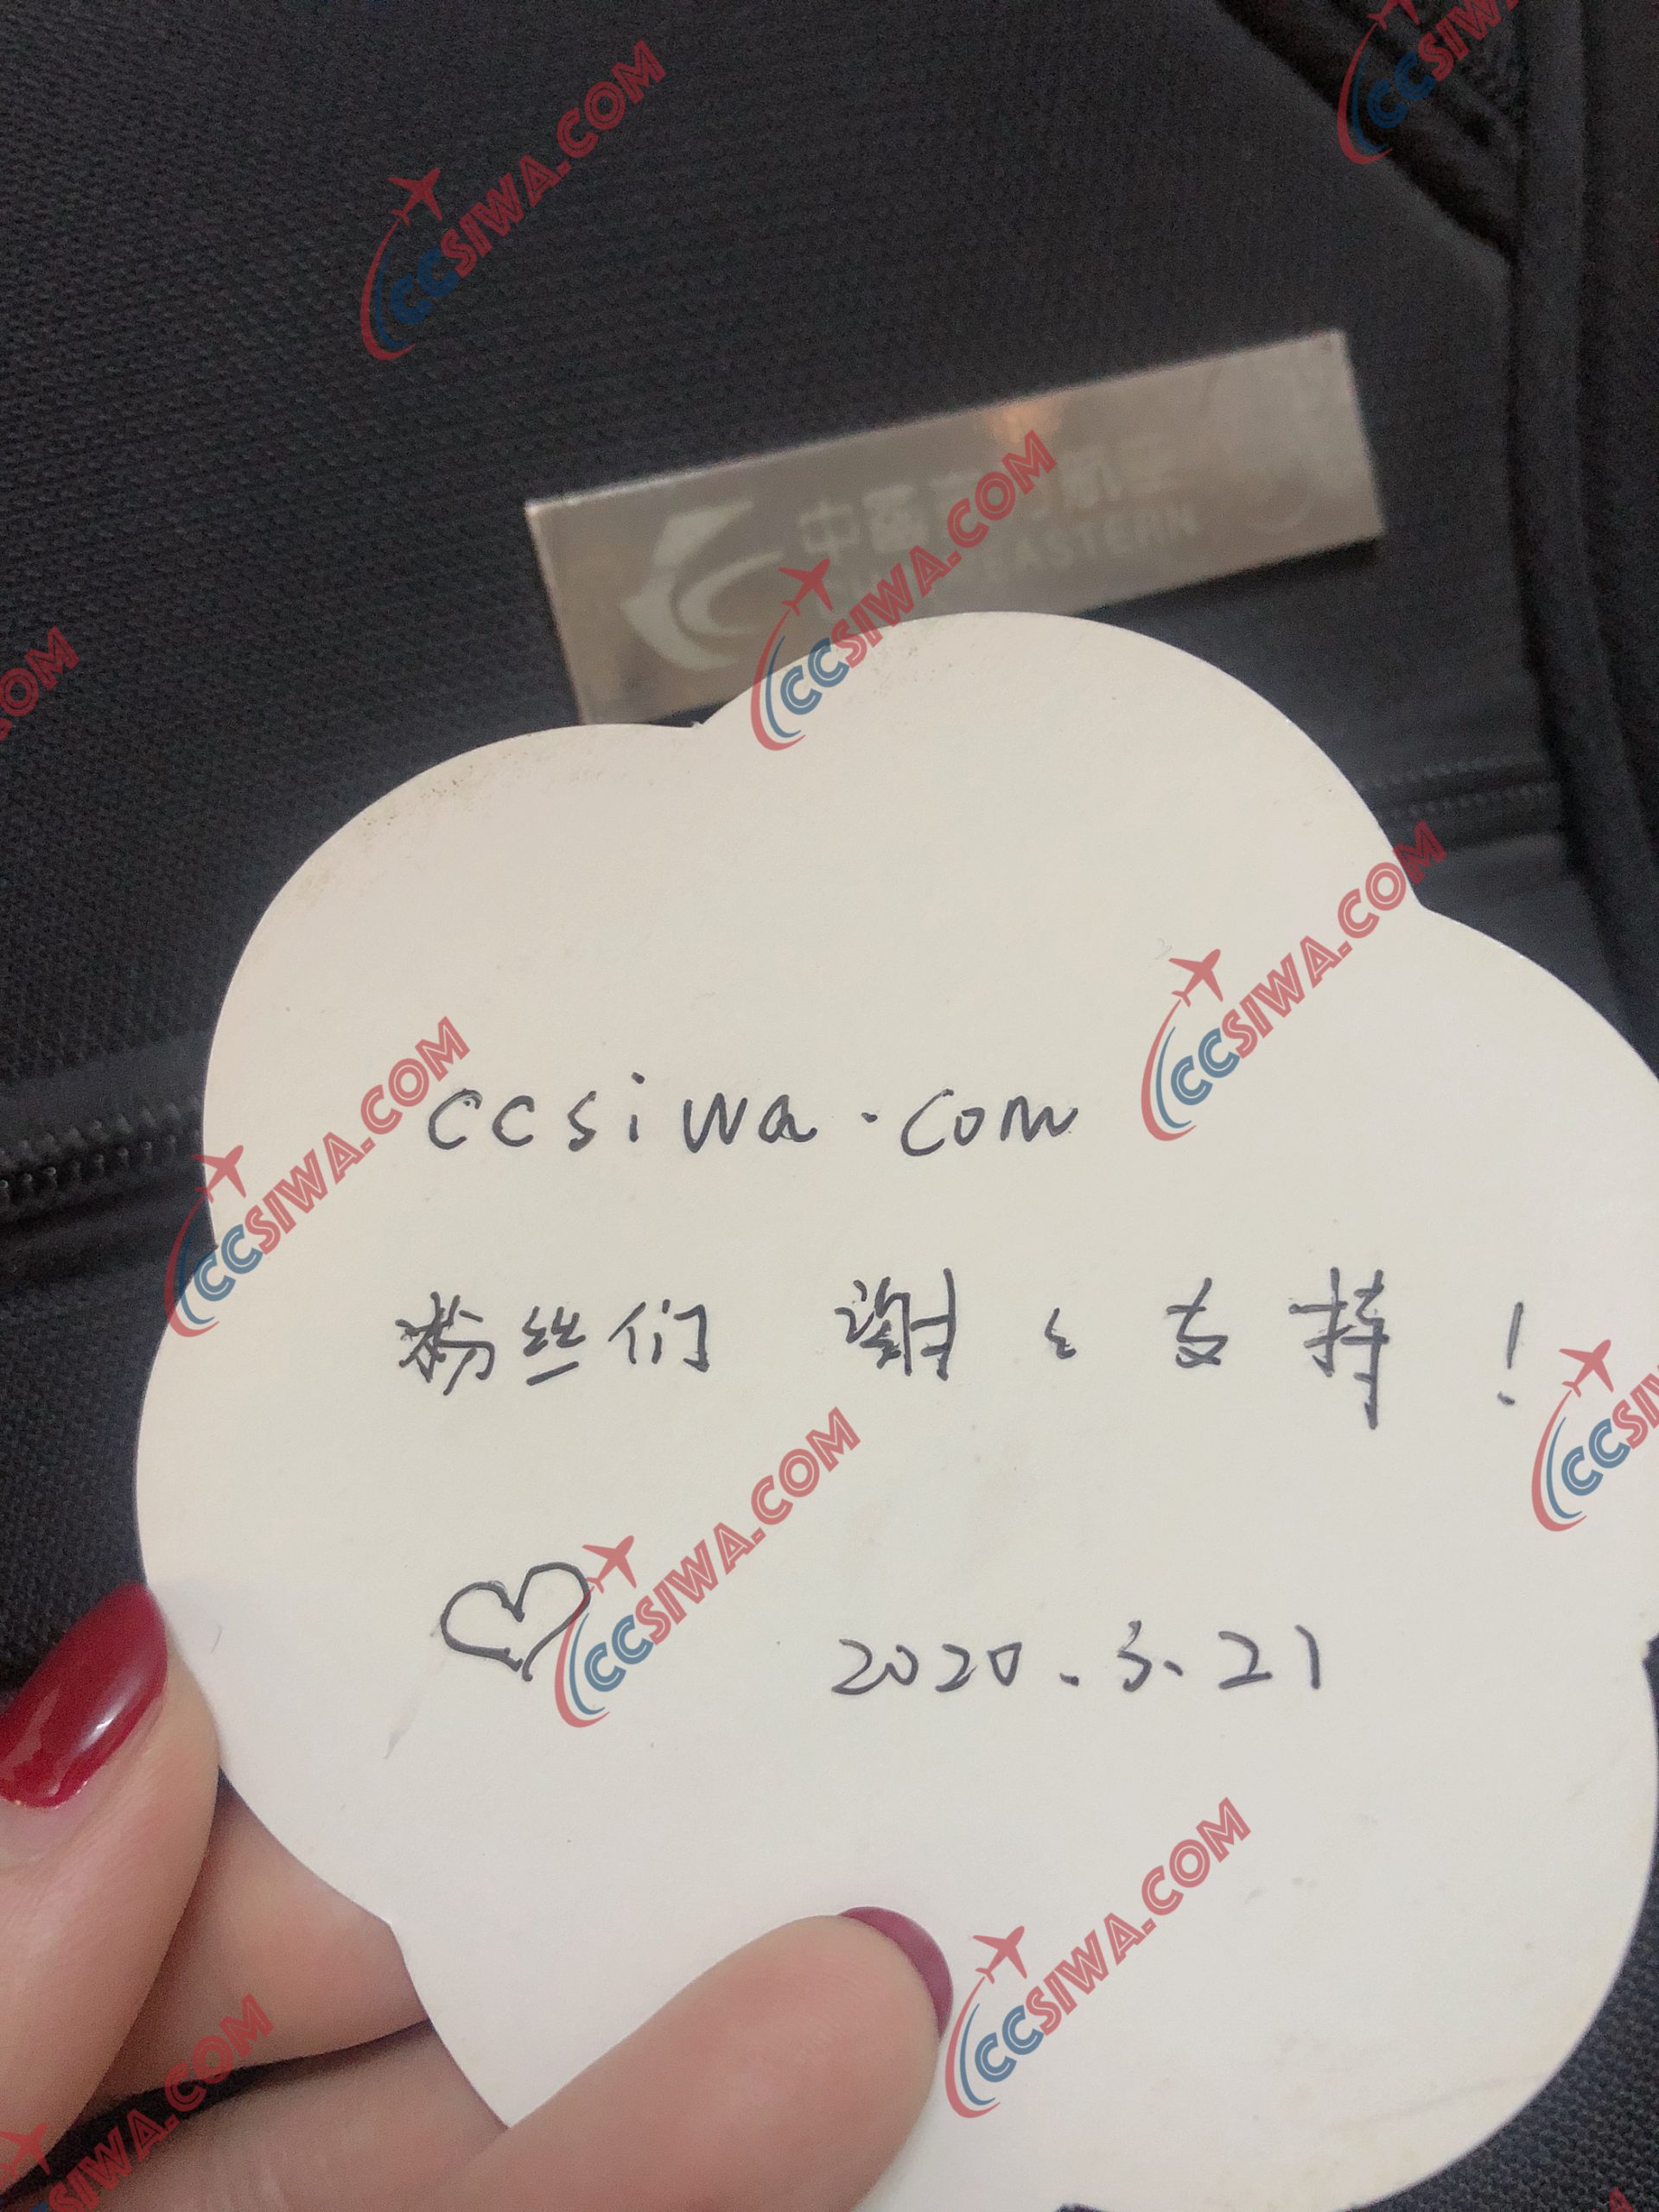 中国东方航空
CHINA EASTERN
ccsiwa.com
粉丝们 谢々支持！
2020.3.21
CCSIWA.COM
CCSIWA.COM
CCSIWA.COM
CCSIWA.COM
CCSIWA.COM
CCSIWA.COM
CCSIWA.COM